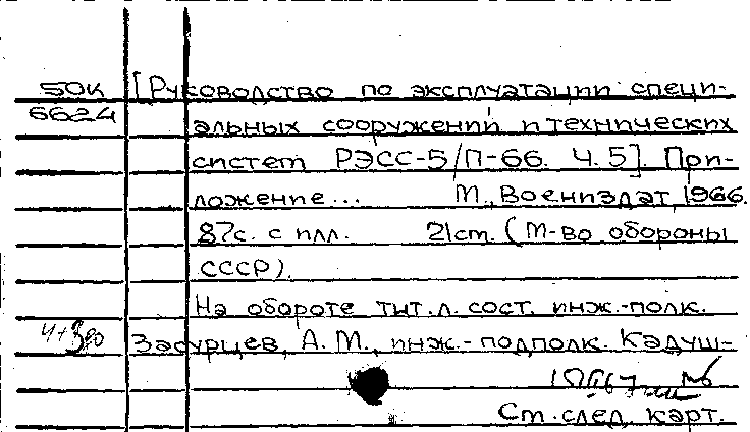 50К [Руководство по эксплуатации специ-
6624 альных сооружений и технических
систем РЭСС-5/П-66. Ч.5]. При-
ложение... М., Воениздат, 1966.
87с. с илл. 21см. (М-во обороны
СССР).
На обороте тит.л. сост. инж.-полк.
Засурцев, А.М., инж.-подполк. Кадуш-
Ст.след. карт.